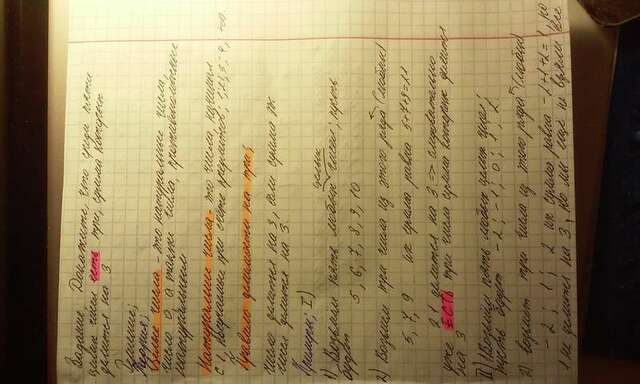 Задание. Докажите, что среди пяти
целых чисел есть три, сумма которых
делится на 3
Решение;
Теория;
Целые числа - это натуральные числа,
число 0, а также числа, противоположные
натуральным
Натуральные числа - это числа, начиная
с 1, получаемые при счете предметов; 1, 2, 3; 4, +∞
Правило делимости на три;
число делится на 3, если сумма его
чисел делится на 3
Примеры; I)
целых
1) Возьмем пять любых чисел; пусть
будет
5, 6, 7, 8, 9, 10
2) Возьмем три числа из этого ряда (любых)
5, 7, 9 их сумма равна 5+7+9=21
21 делится на 3 => следовательно
уже ЕСТЬ три числа сумма которых делится
на 3
II) 1) Возьмем пять любых целых чисел;
пусть будет -2; -1; 0; 1; 2.
2) возьмем три числа из этого ряда (любых)
-2; 1; 2 их сумма равна -2+1+2=1, но
1 не делится на 3, но мы ещё не взяли все